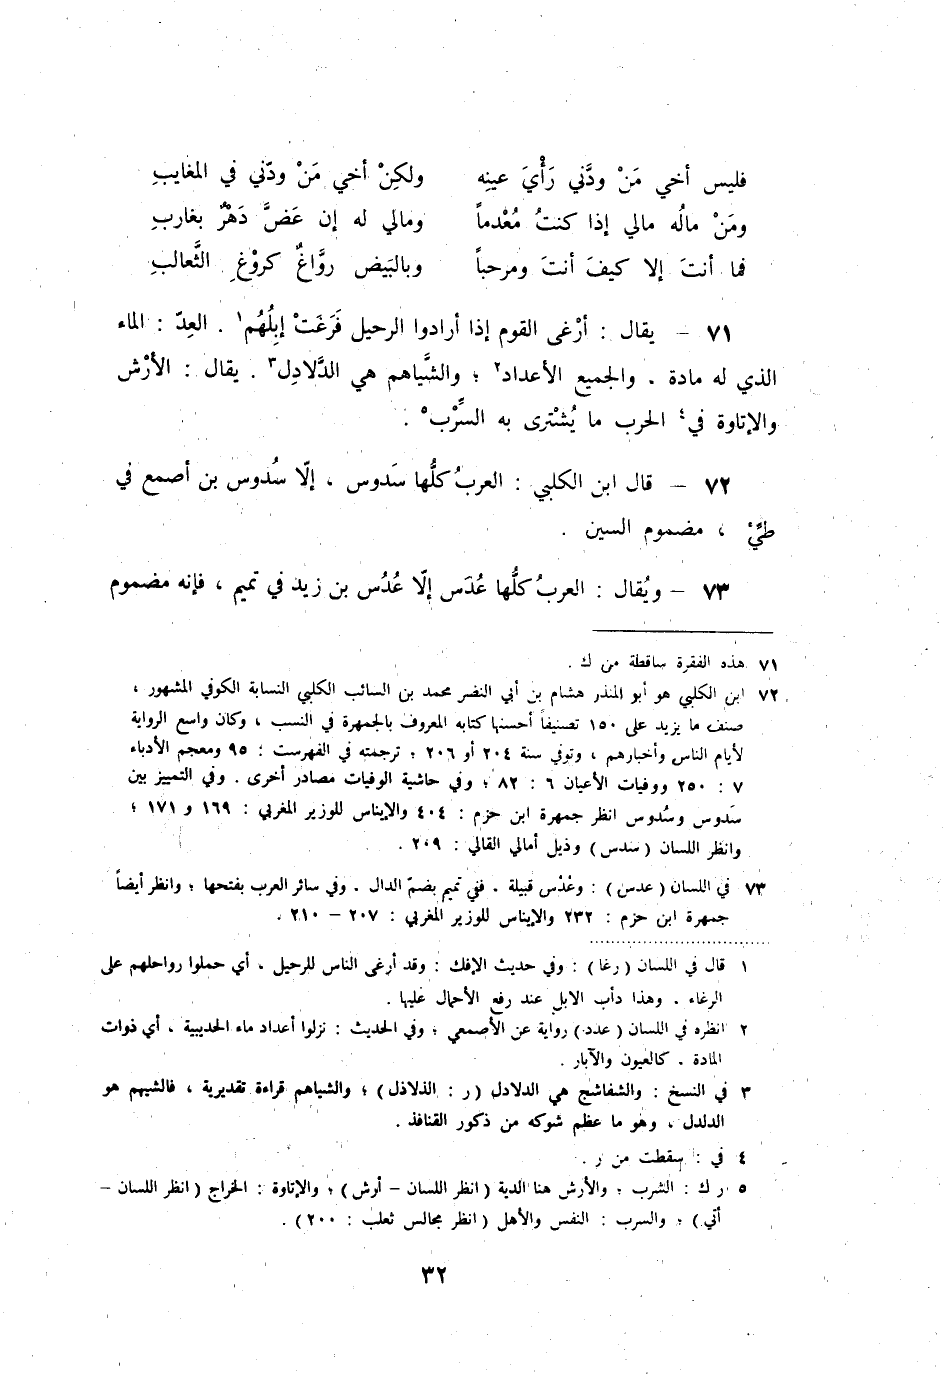 فليس أخي مَنْ ودَّني رَأْيَ عينِه ولكِنْ أخي مَنْ ودّني في المغايبِ
ومَنْ مالُه مالي إذا كنتُ مُعْدماً ومالي له إن عَضَّ دَهْرٌ بغاربِ
فما أنتَ إلا كيفَ أنتَ ومرحباً وبالبَيض روَّاغٌ كروْغِ الثَّعالبِ
٧١ – يقال : أرْغى القوم إذا أرادوا الرحيل فَرَغَتْ إبلُهُم١ . العِدّ : الماء
الذي له مادة . والجميع الأعداد٢ ؛ والشَّياهم هي الدَّلادِل٣ . يقال : الأرْش
والإتاوة في٤ الحرب ما يُشْترى به السِّرْب٥ .
٧٢ – قال ابن الكلبي : العربُ كلُّها سَدوس ، إلّا سُدوس بن أصمع في
طيّْ ، مضموم السين .
٧٣ – ويُقال : العربُ كلُّها عُدَس إلّا عُدُس بن زيد في تميم ، فإنه مضموم
٧١ هذه الفقرة ساقطة من ك .
٧٢ ابن الكلبي هو أبو المنذر هشام بن أبي النضر محمد بن السائب الكلبي النسابة الكوفي المشهور ،
صنف ما يزيد على ١٥٠ تصنيفاً أحسنها كتابه المعروف بالجمهرة في النسب ، وكان واسع الرواية
لأيام الناس وأخبارهم ، وتوفي سنة ٢٠٤ أو ٢٠٦ ؛ ترجمته في الفهرست : ٩٥ ومعجم الأدباء
٧ : ٢٥٠ ووفيات الأعيان ٦ : ٨٢ ؛ وفي حاشية الوفيات مصادر أخرى . وفي التمييز بين
سَدوس وسُدوس انظر جمهرة ابن حزم : ٤٠٤ والإيناس للوزير المغربي : ١٦٩ و ١٧١ ؛
وانظر اللسان ( سدس ) وذيل أمالي القالي : ٢٠٩ .
٧٣ في اللسان ( عدس ) : وعُدْس قبيلة . ففي تميم بضمّ الدال . وفي سائر العرب بفتحها ؛ وانظر أيضاً
جمهرة ابن حزم : ٢٣٢ والإيناس للوزير المغربي : ٢٠٧ – ٢١٠ .
١ قال في اللسان ( رغا ) : وفي حديث الإفك : وقد أرغى الناس للرحيل ، أي حملوا رواحلهم على
الرغاء . وهذا دأب الابل عند رفع الأحمال عليها .
٢ انظره في اللسان ( عدد ) رواية عن الأصمعي ؛ وفي الحديث : نزلوا أعداد ماء الحديبية ، أي ذوات
المادة . كالعيون والآبار .
٣ في النسخ : والشفاشج هي الدلادل ( ر : الذلاذل ) ؛ والشياهم قراءة تقديرية ، فالشيهم هو
الدلدل ، وهو ما عظم شوكه من ذكور القنافذ .
٤ في : سقطت من ر .
٥ ر ك : الشرب ؛ والأرش هنا الدية ( انظر اللسان – أرش ) ؛ والإتاوة : الخراج ( انظر اللسان –
أتي ) ؛ والسرب : النفس والأهل ( انظر مجالس ثعلب : ٢٠٠ ) .
٣٢